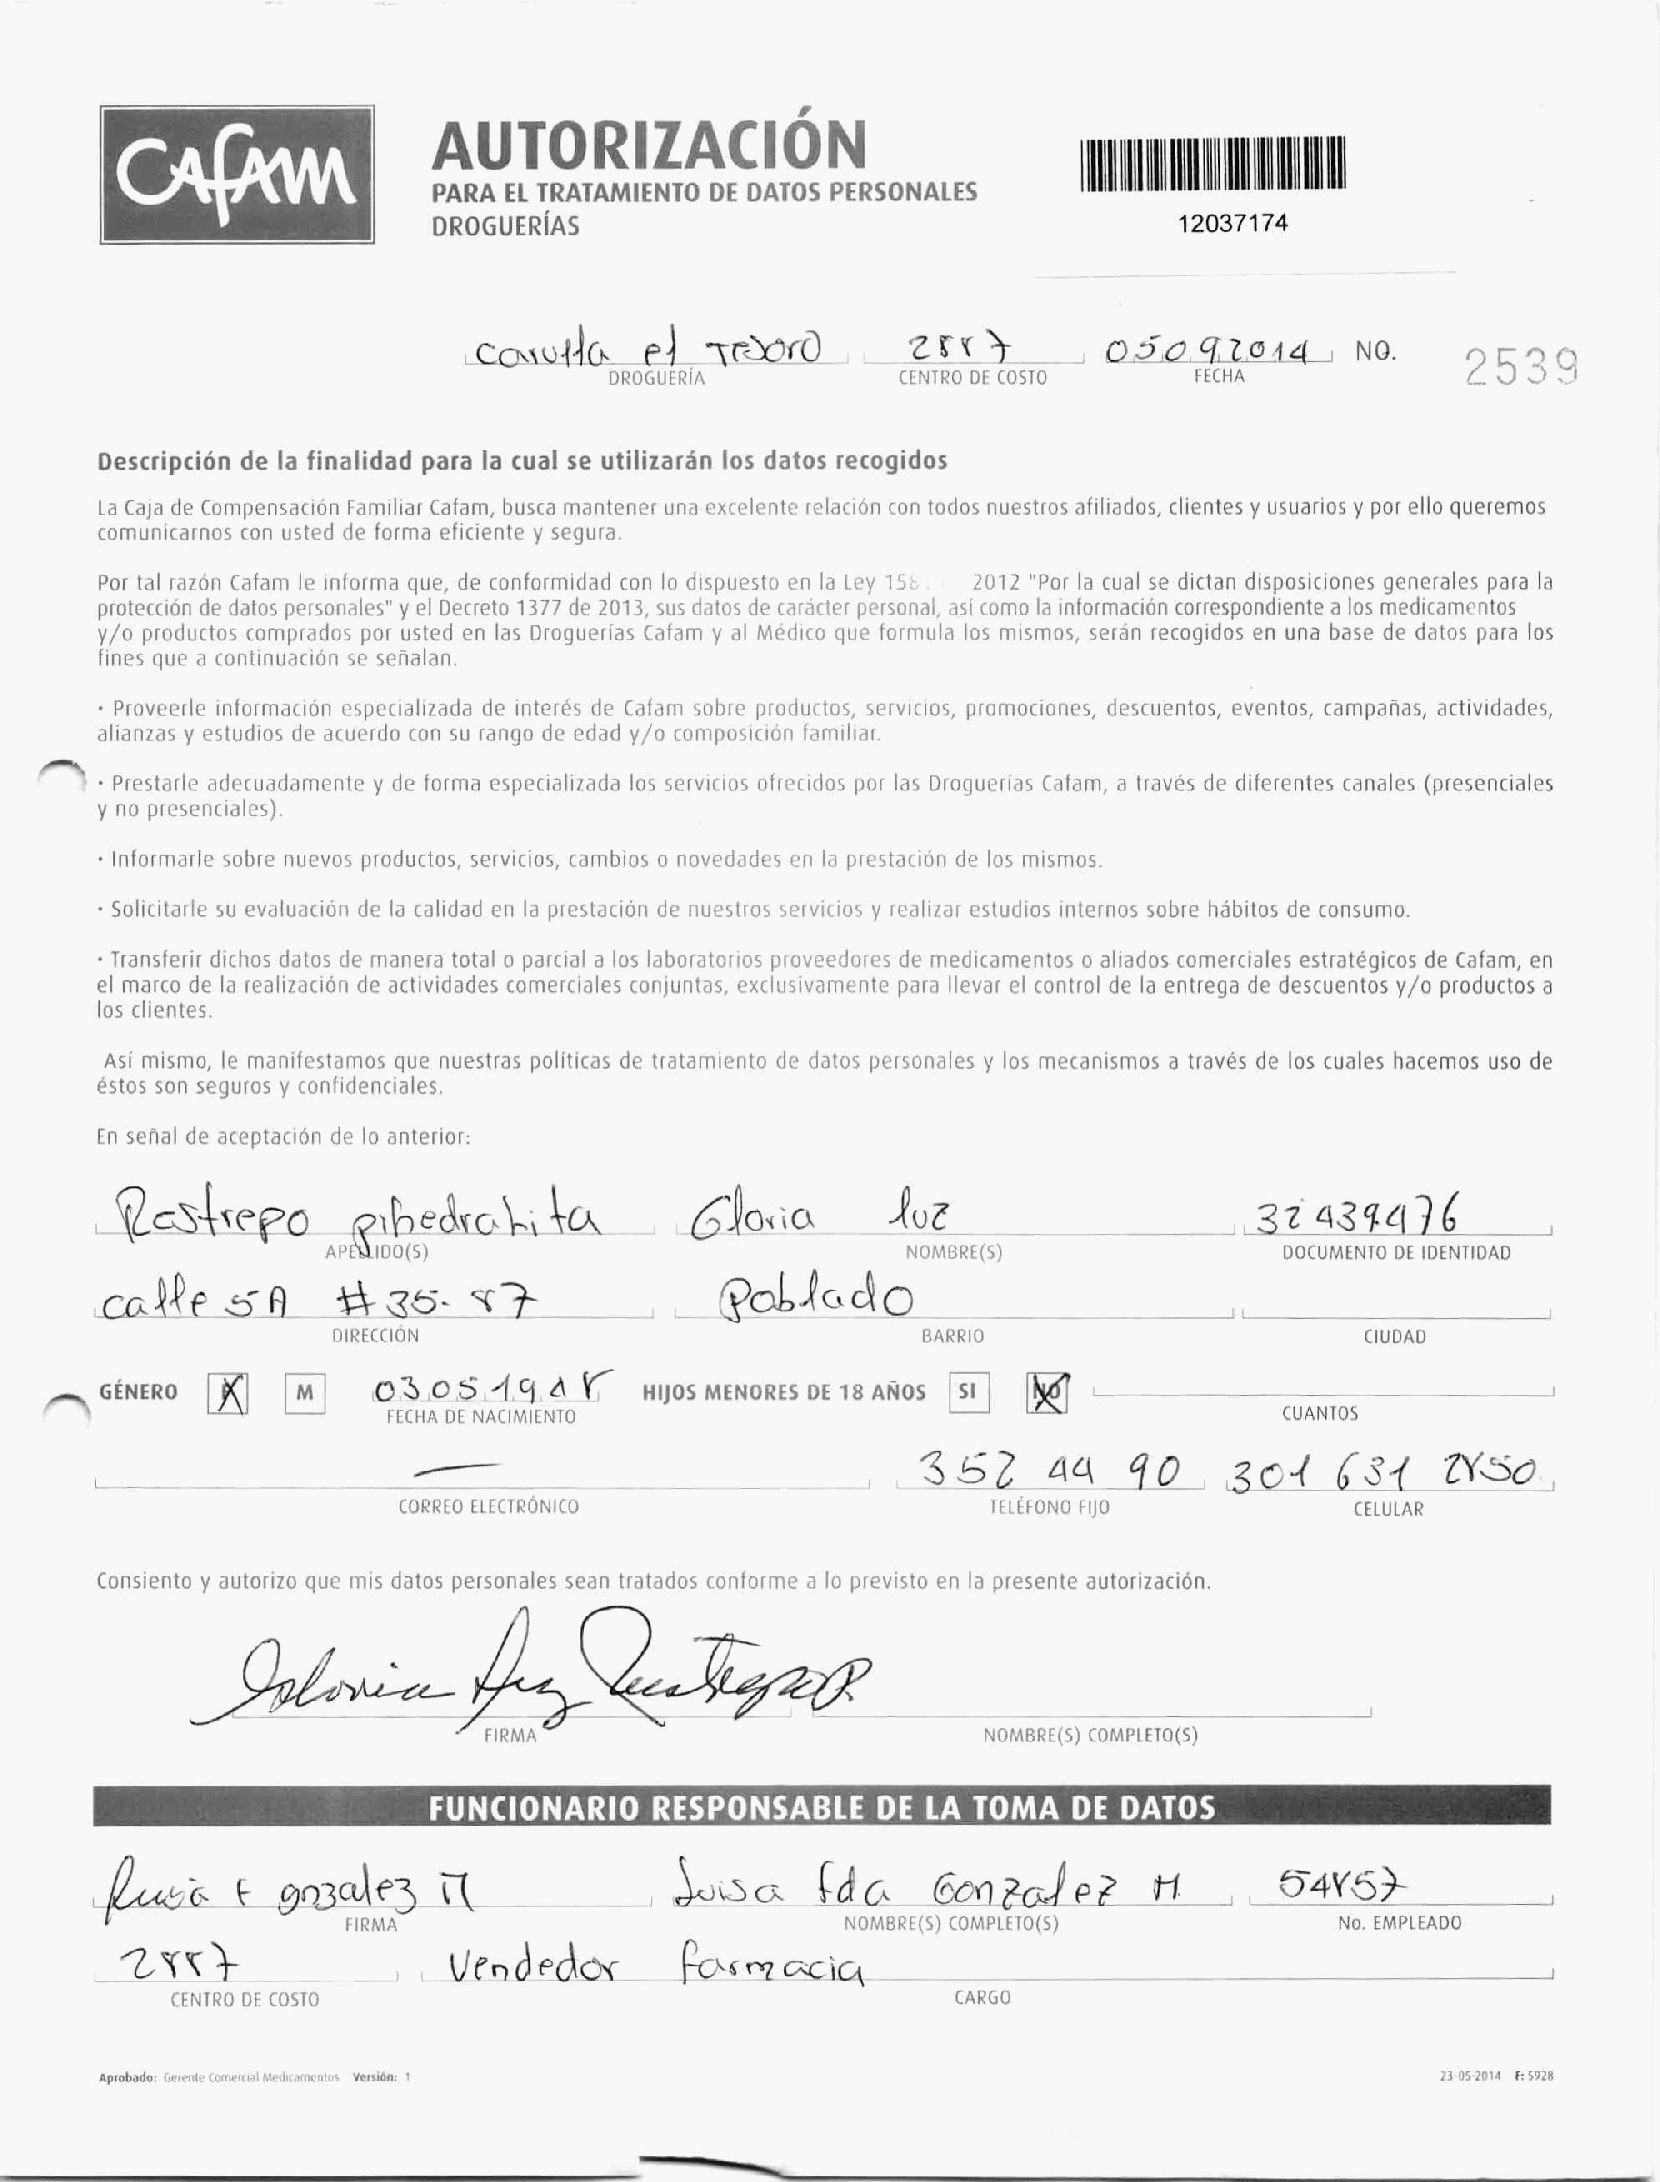 Cafam
AUTORIZACIÓN
PARA EL TRATAMIENTO DE DATOS PERSONALES
DROGUERÍAS
12037174
Carulla el Tesoro 2887 05092014 NO. 2539
DROGUERÍA CENTRO DE COSTO FECHA
Descripción de la finalidad para la cual se utilizarán los datos recogidos
La Caja de Compensación Familiar Cafam, busca mantener una excelente relación con todos nuestros afiliados, clientes y usuarios y por ello queremos
comunicarnos con usted de forma eficiente y segura.
Por tal razón Cafam le informa que, de conformidad con lo dispuesto en la Ley 158 2012 "Por la cual se dictan disposiciones generales para la
protección de datos personales" y el Decreto 1377 de 2013, sus datos de carácter personal, así como la información correspondiente a los medicamentos
y/o productos comprados por usted en las Droguerías Cafam y al Médico que formula los mismos, serán recogidos en una base de datos para los
fines que a continuación se señalan.
· Proveerle información especializada de interés de Cafam sobre productos, servicios, promociones, descuentos, eventos, campañas, actividades,
alianzas y estudios de acuerdo con su rango de edad y/o composición familiar.
· Prestarle adecuadamente y de forma especializada los servicios ofrecidos por las Droguerías Cafam, a través de diferentes canales (presenciales
y no presenciales).
· Informarle sobre nuevos productos, servicios, cambios o novedades en la prestación de los mismos.
· Solicitarle su evaluación de la calidad en la prestación de nuestros servicios y realizar estudios internos sobre hábitos de consumo.
· Transferir dichos datos de manera total o parcial a los laboratorios proveedores de medicamentos o aliados comerciales estratégicos de Cafam, en
el marco de la realización de actividades comerciales conjuntas, exclusivamente para llevar el control de la entrega de descuentos y/o productos a
los clientes.
Así mismo, le manifestamos que nuestras políticas de tratamiento de datos personales y los mecanismos a través de los cuales hacemos uso de
éstos son seguros y confidenciales.
En señal de aceptación de lo anterior:
Restrepo Gloria luz 32439476
APELLIDO(S) NOMBRE(S) DOCUMENTO DE IDENTIDAD
calle 5A # 35-87 Poblado
DIRECCIÓN BARRIO CIUDAD
GÉNERO X M 03051948 HIJOS MENORES DE 18 AÑOS SI NO X
FECHA DE NACIMIENTO CUANTOS
— 352 44 90 301 631 2850
CORREO ELECTRÓNICO TELÉFONO FIJO CELULAR
Consiento y autorizo que mis datos personales sean tratados conforme a lo previsto en la presente autorización.
Gloria Luz Restrepo P.
FIRMA NOMBRE(S) COMPLETO(S)
FUNCIONARIO RESPONSABLE DE LA TOMA DE DATOS
Luisa F gonzalez M Luisa fda Gonzalez M 54857
FIRMA NOMBRE(S) COMPLETO(S) No. EMPLEADO
2887 Vendedor farmacia
CENTRO DE COSTO CARGO
Aprobado: Gerente Comercial Medicamentos Versión: 1 23-05-2014 F: 5928